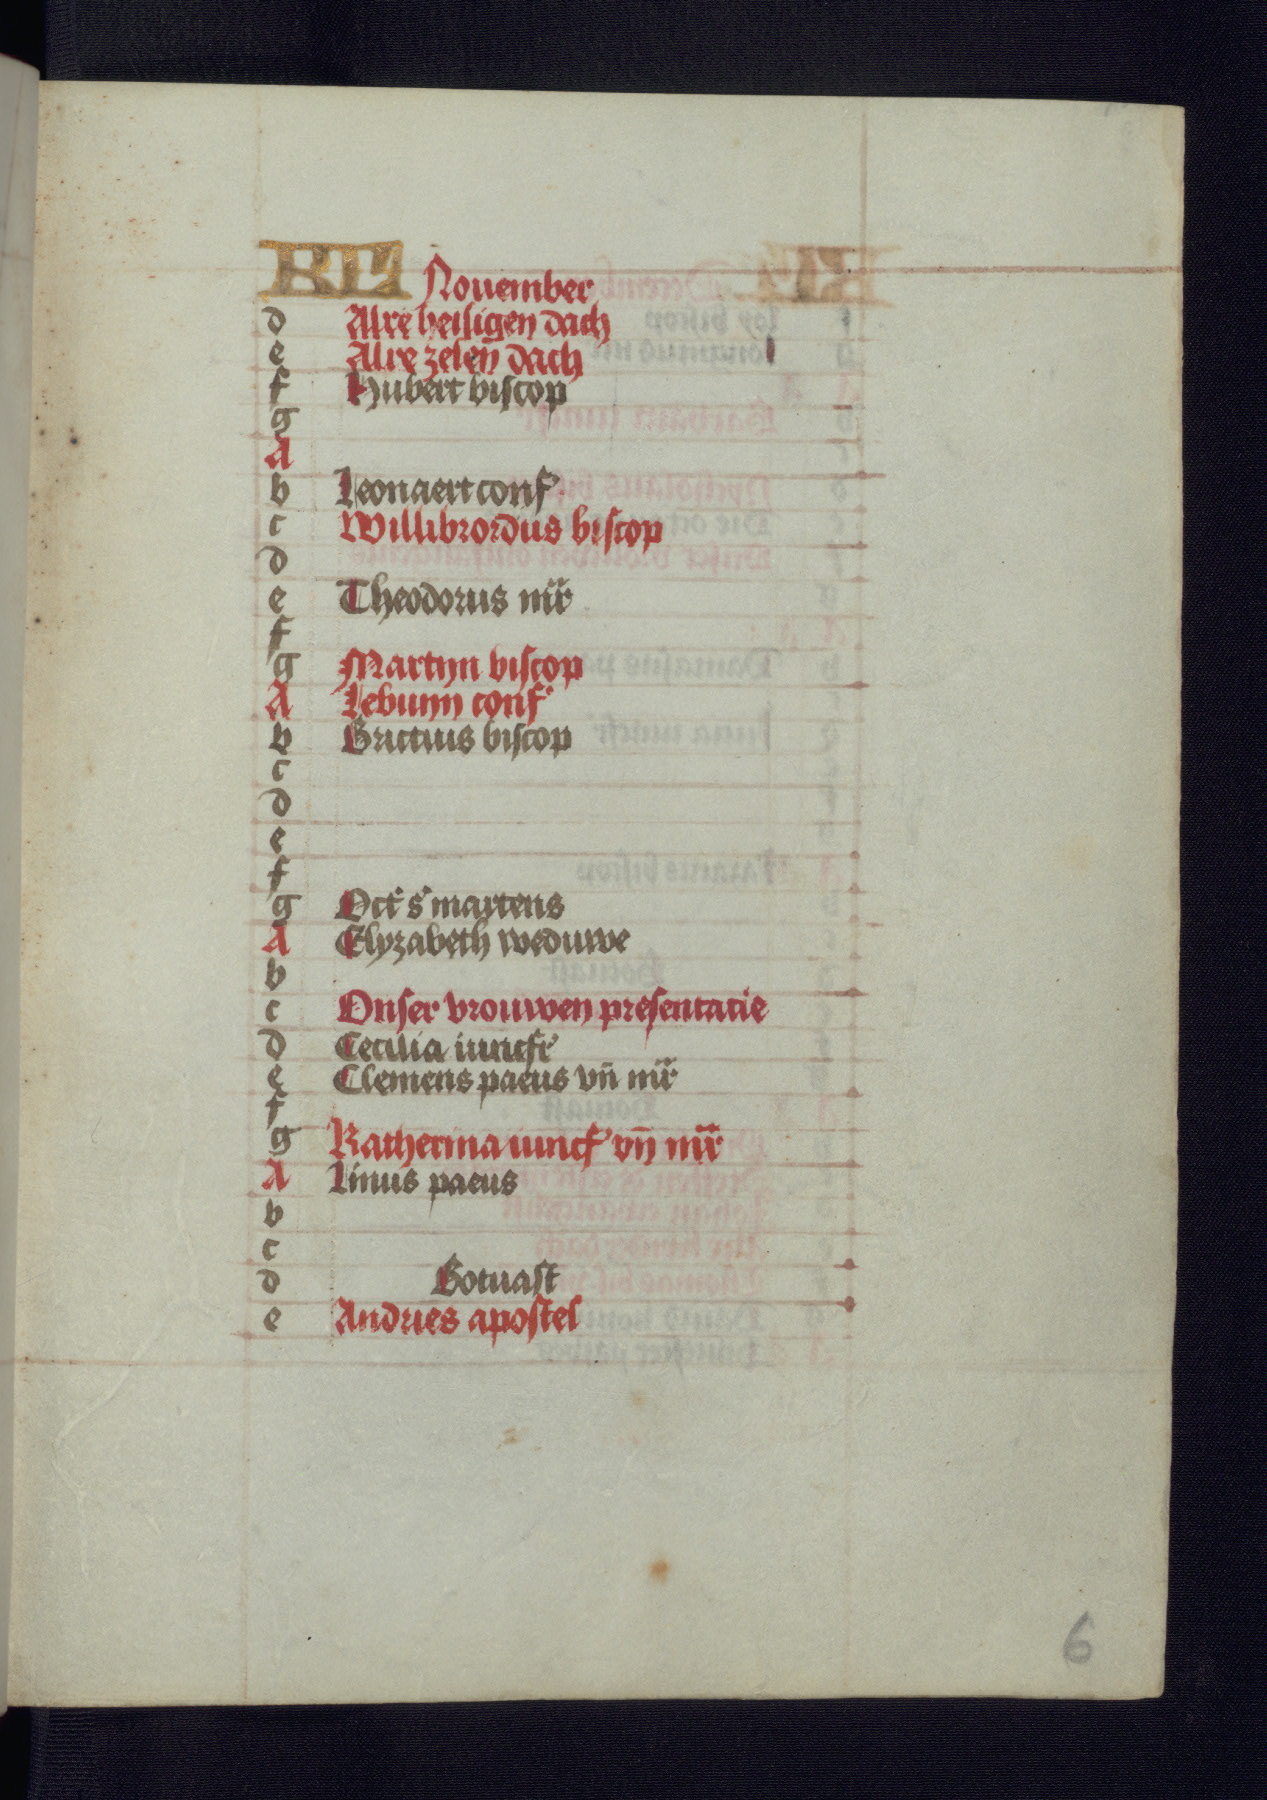 KL Nouember
d Alre heiligen dach
e Alre zelen dach
f Hubert biscop
g
A
b Leonaert conf
c Willibrordus biscop
d
e Theodorus mr
f
g Martijn biscop
A Lebuyn conf
b Brictius biscop
c
d
e
f
g Oct s martens
A Elyzabeth weduwe
b
c Onser vrouwen presentatie
d Cecilia iuncfr
e Clemens paeus vn mr
f
g Katherina iuncf vn mr
A Linus paeus
b
c
d Gotuast
e Andries apostel
6